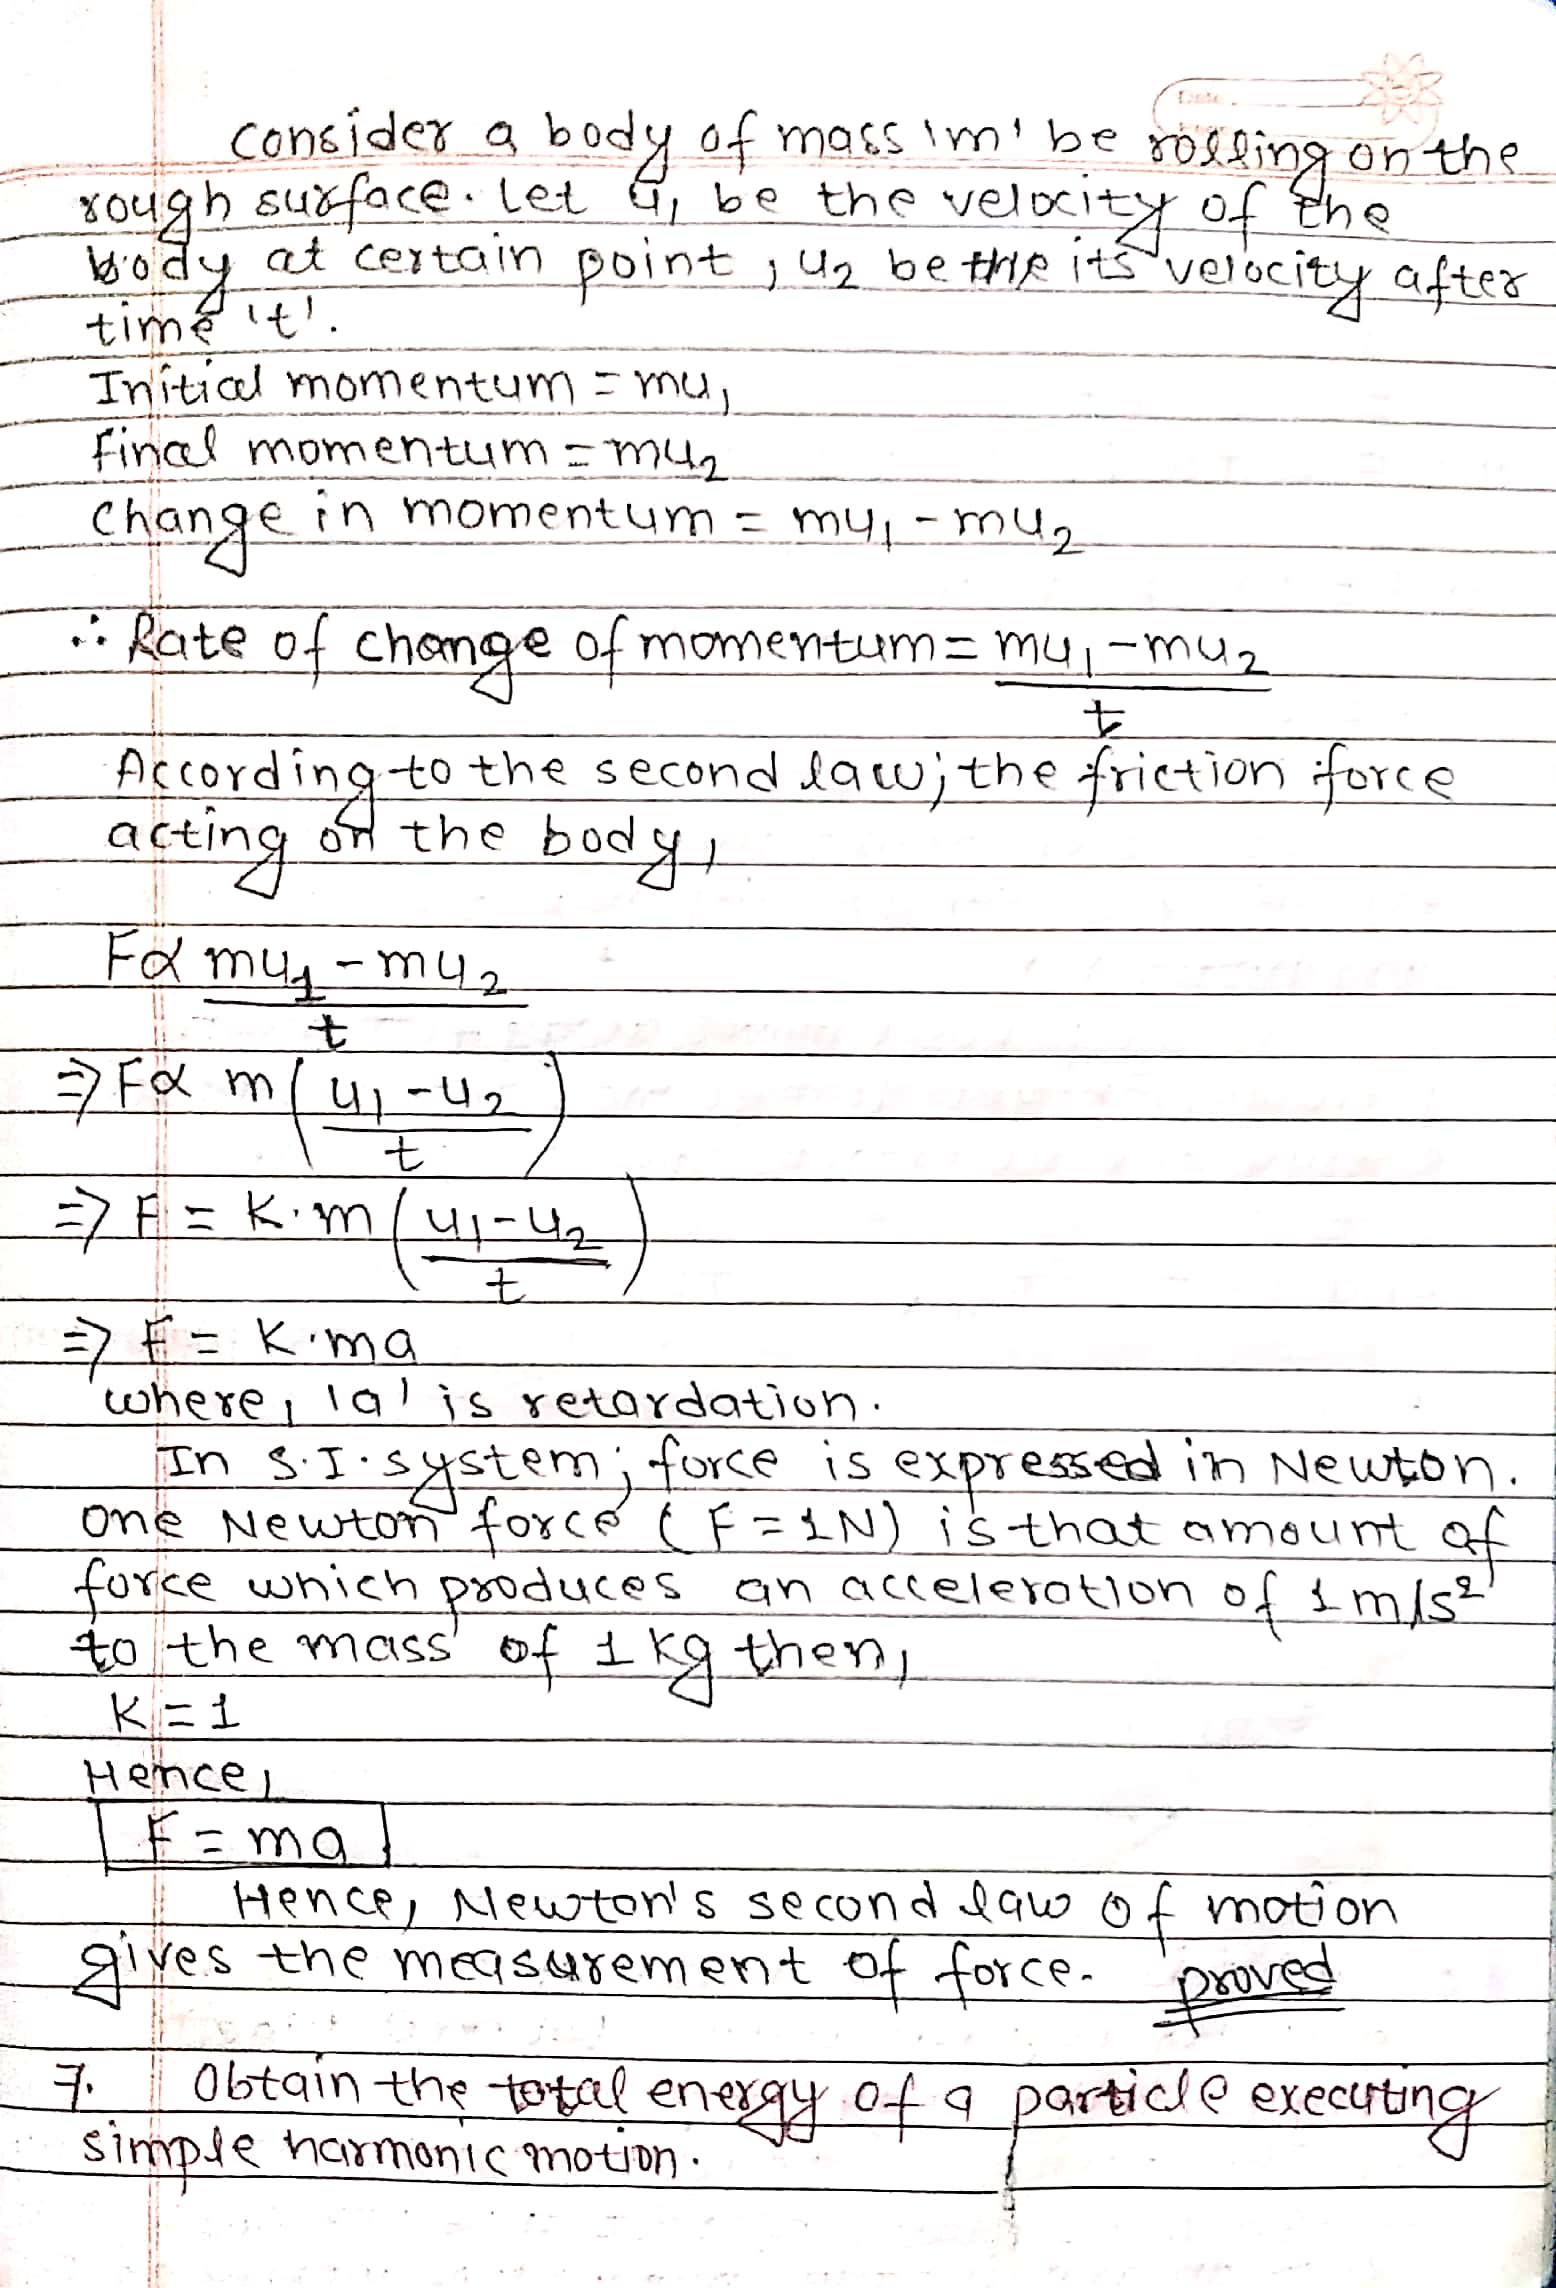 Date
consider a body of mass 'm' be rolling on the
rough surface. Let u₁ be the velocity of the
body at certain point, u₂ be the its velocity after
time 't'.
Initial momentum = mu₁
final momentum = mu₂
change in momentum = mu₁ - mu₂
∴ Rate of change of momentum = mu₁ - mu₂
t
According to the second law; the friction force
acting on the body,
F α mu₁ - mu₂
t
⇒ F α m (u₁ - u₂)
t
⇒ F = K.m (u₁ - u₂)
t
⇒ F = K.ma
where, 'a' is retardation.
In S.I. system; force is expressed in Newton.
one Newton force (F = 1N) is that amount of
force which produces an acceleration of 1 m/s²
to the mass of 1 kg then,
K = 1
Hence,
F = ma
Hence, Newton's second law of motion
gives the measurement of force. proved
7. Obtain the total energy of a particle executing
simple harmonic motion.